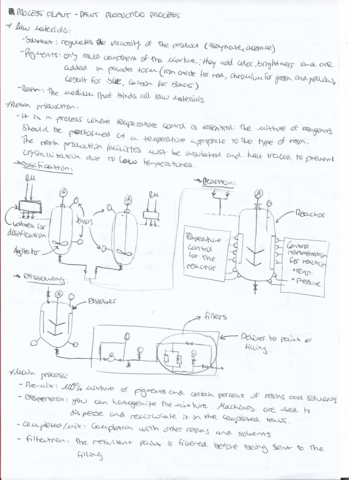 PROCESS PLANT - PAINT PRODUCTION PROCESS
Raw materials:
- Solvent: regulates the viscosity of the product (isocyanate, acetone)
- Pigments: only solid components of the mixture; they add color, brightness and are
added in powder form (iron oxide for red, chromium for green and yellow,
cobalt for blue, carbon for black)
- Resin: The medium that binds all raw materials
Resin production:
- It is a process where temperature control is essential. The mixture of reagents
should be performed at a temperature appropriate to the type of resin.
The resin production facilities must be insulated and heat traced to prevent
crystallization due to low temperatures.
→ Dosification:
→ Reaction:
Reactor
Agitator
Temperature
control
for the
reactor
Control
instrumentation
for reaction
- Temp.
- Pressure
→ Dissolving
Dissolver
filters
Deliver to paint or
filling
Main process:
- Pre-mix: 100% mixture of pigments and certain percent of resins and solvents
- Dispersion: you can homogenize the mixture. Machines are used to
disperse and recirculate it in the completed tanks
- Completed/mix: completion with other resins and solvents
- Filtration: The resultant paint is filtered before being sent to the
filling